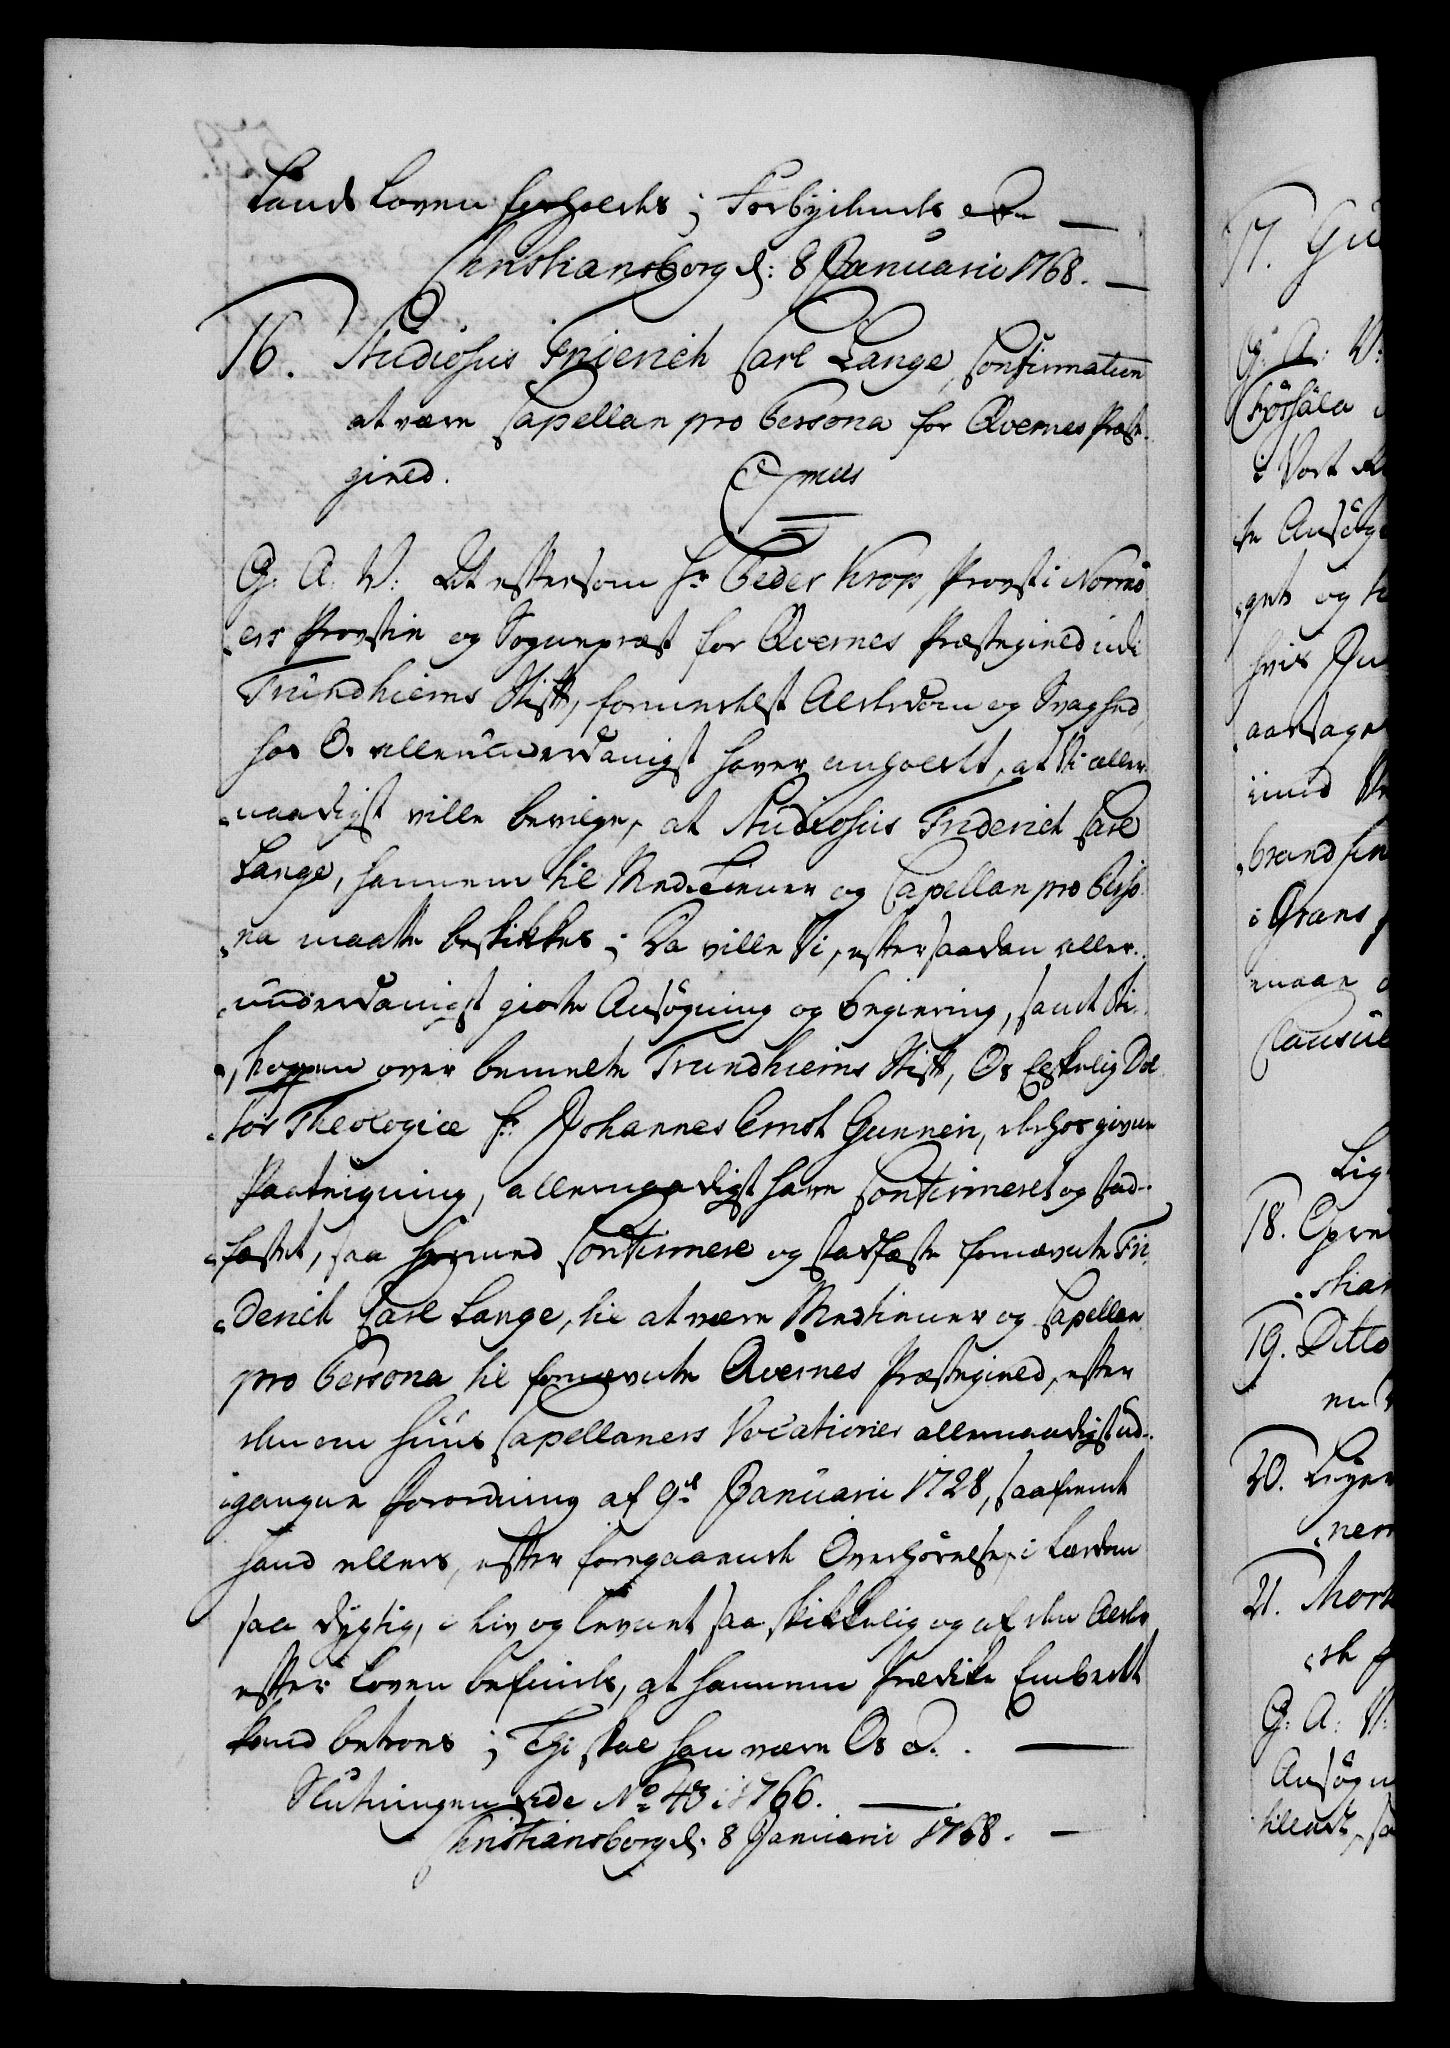 Lands Loven forholdes; Forbydendes etc
Christiansborg d: 8 Januarii 1768.
16. Studiosus Friderich Carl Lange, Confirmation
at være Capellan pro Persona for Qvernes Præste-
gield.
G: A: V: At eftersom Hr Peder Krog, Provst i Normø-
ers Provstie og Sogneprest for Qvernes Præstegield udi
Trundhiems Stift, formedelst Alderdom og Svaghed,
hos Os allerunderdanigst haver anholdt, at Vi aller-
naadigst ville bevilge, at Studiosus Friderich Carl
Lange, hannem til Medtiener og Capellan pro Perso-
na maatte beskikkes; Da ville Vi, efter saadan aller-
underdanigst giorte Ansøgning og Begiering, samt Bi-
skoppen over bemelte Trundhiems Stift, Os Elskelig Doc-
tor Theologiæ Hr Johannes Ernst Gunneri, derhos given
Paategning, allernaadigst have Confirmeret og stad-
fæstet, saa hermed Confirmere og stadfæste fornævnte Fri-
derich Carl Lange, til at være Medtiener og Capellan
pro Persona til fornævnte Qvernes Præstegield, efter
den om hiins Capellaners Vocationer allernaadigst ud-
gangne Forordning af 9de Januarii 1728, saafremt
hand ellers, efter foregaaende Overhørelse, i Lærdom
saa dygtig, i Liv og Levnet saa skikkelig og af den Alder
efter Loven befindes, at hannem Prædike Embedet
kand betroes; Thi skal han være Os &.
Slutningen vide No 43 i 1766.
Christiansborg d: 8 Januarii 1768.
17.
G: A: V:
i Vort
gets og
hvis
aarsaget
imod
i Grans
Clausul
18.
19. Ditto
20.
21.
G: A: V: